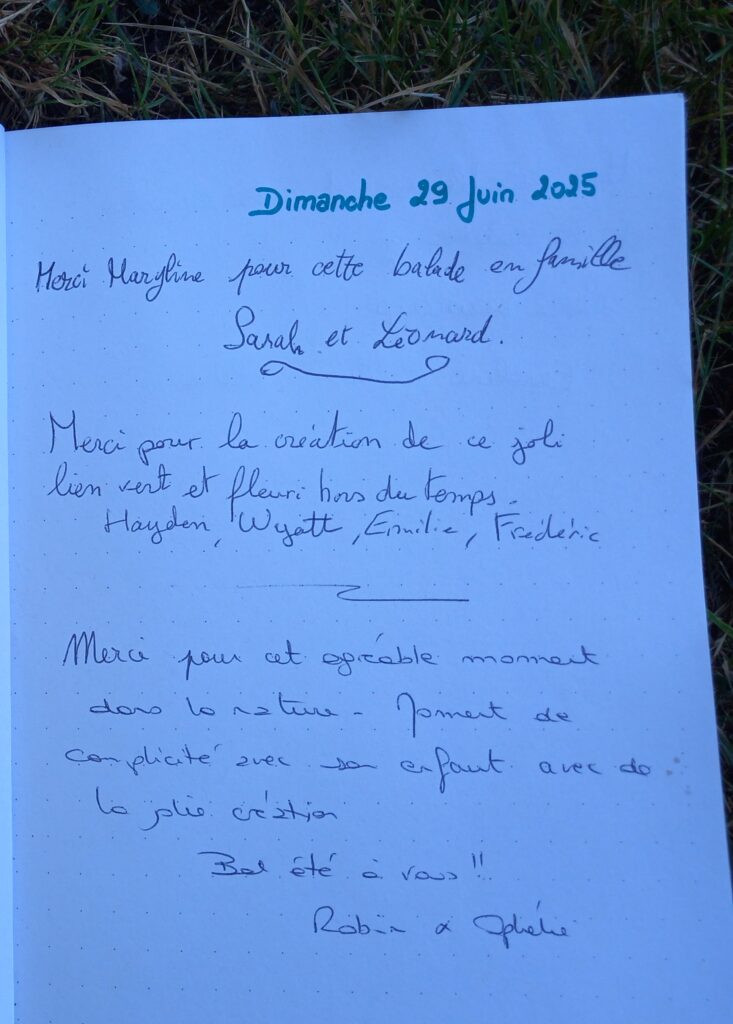 Dimanche 29 Juin 2025
Merci Maryline pour cette balade en famille
Sarah et Léonard.
Merci pour la création de ce joli
lien vert et fleuri hors du temps.
Hayden, Wyatt, Emilie, Frédéric
Merci pour cet agréable moment
dans la nature - Moment de
complicité avec son enfant avec de
la jolie création
Bel été à vous !!
Robin & Ophélie